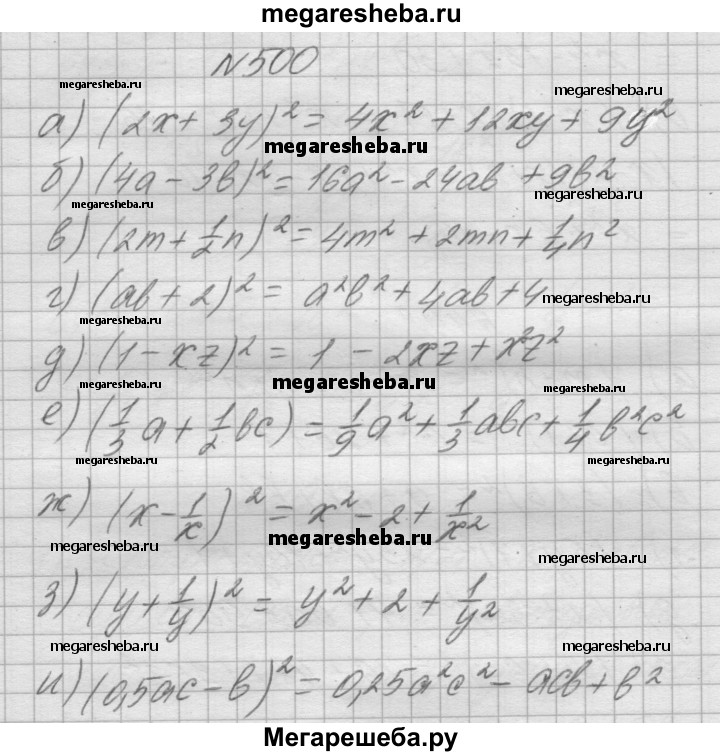 megaresheba.ru
N500
megaresheba.ru megaresheba.ru
а) (2x + 3y)² = 4x² + 12xy + 9y²
megaresheba.ru
б) (4a - 3b)² = 16a² - 24ab + 9b²
megaresheba.ru megaresheba.ru
в) (2m + 1/2 n)² = 4m² + 2mn + 1/4 n²
г) (ab + 2)² = a²b² + 4ab + 4
megaresheba.ru megaresheba.ru
д) (1 - xz)² = 1 - 2xz + x²z²
megaresheba.ru megaresheba.ru megaresheba.ru
е) (1/3 a + 1/2 bc) = 1/9 a² + 1/3 abc + 1/4 b²c²
megaresheba.ru megaresheba.ru
ж) (x - 1/x)² = x² - 2 + 1/x²
megaresheba.ru megaresheba.ru megaresheba.ru
з) (y + 1/y)² = y² + 2 + 1/y²
megaresheba.ru megaresheba.ru
и) (0,5ac - b)² = 0,25a²c² - acb + b²
Мегарешеба.ру